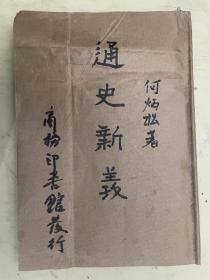 何炳松著
通史新義
商務印書館發行